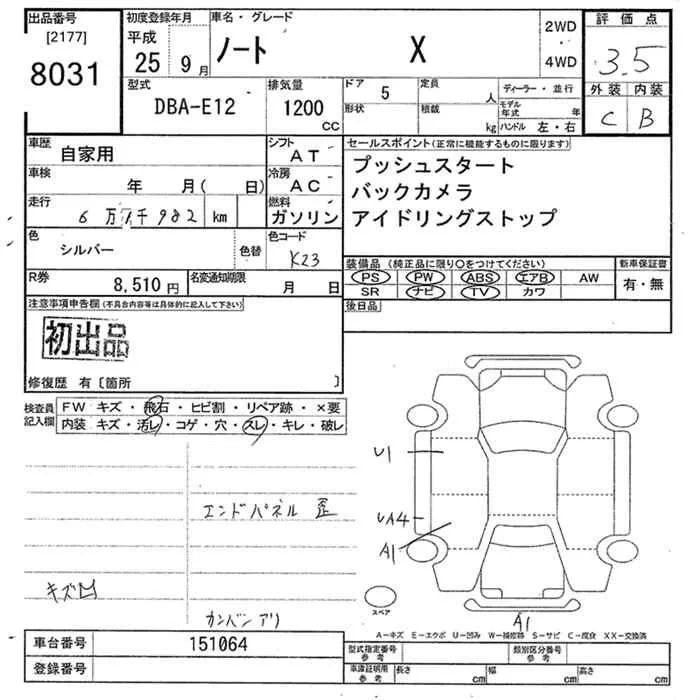 出品番号 初度登録年月 車名・グレード 2WD 評価点
[2177] 平成 25 9月 ノート X 4WD 3.5
8031 外装 内装
型式 排気量 ドア 5 定員 人 ディーラー・並行 C B
DBA-E12 1200cc 形状 積載 kg モデル年式 年 ハンドル 左・右
車歴 自家用 シフト AT セールスポイント(正常に機能するものに限ります)
車検 年 月( 日) 冷房 AC プッシュスタート
バックカメラ
走行 6万 千982 km 燃料 ガソリン アイドリングストップ
色 シルバー 色替 色コード K23
装備品(純正品に限り○をつけてください) 新車保証書
R券 8,510円 名変通知期限 月 日 PS PW ABS エアB AW 有・無
SR ナビ TV カワ
注意事項申告欄(不具合内容等は具体的に記入して下さい) 後日品
初出品
修復歴 有〔箇所 〕
検査員記入欄 FW キズ・飛石・ヒビ割・リペア跡・×要
内装 キズ・汚レ・コゲ・穴・スレ・キレ・破レ
U1
エンドパネル 歪
UA4
A1
キズ凹
スペア
カンバンアリ A1
A-キズ E-エクボ U-凹み W-補修跡 S-サビ C-腐食 XX-交換済
車台番号 151064 型式指定番号 参考 類別区分番号 参考
登録番号 車庫証明用 参考 長さ cm 幅 cm 高さ cm